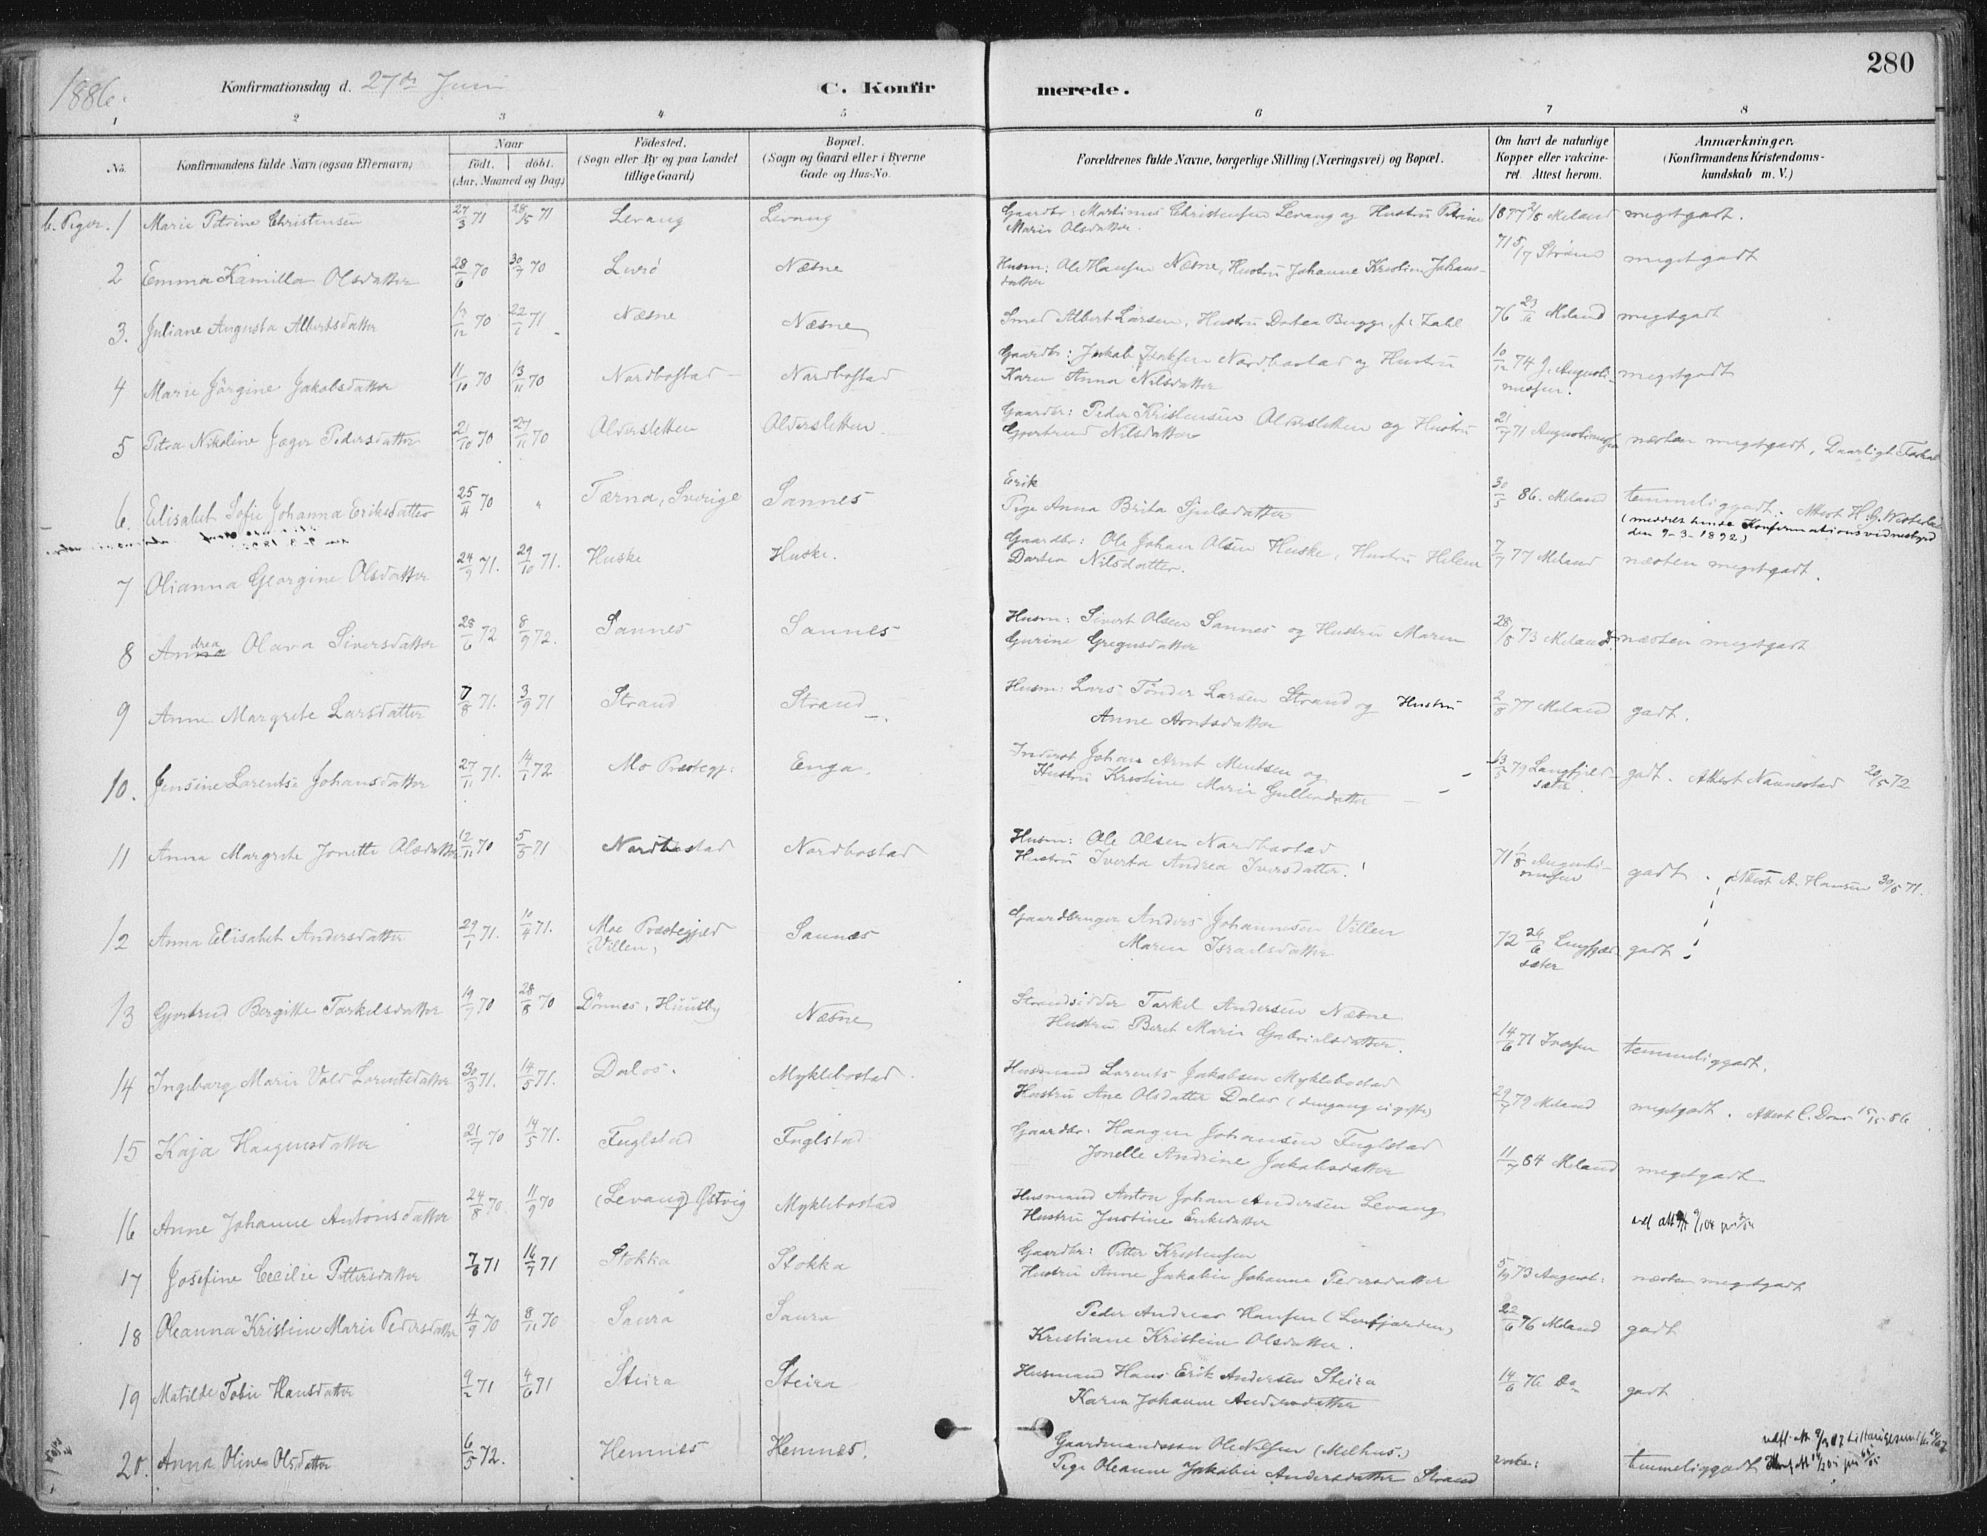 280
1886.
Konfirmationsdag d. 27de Juni
C. Konfirmerede.
1 2 3 4 5 6 7 8
No.
Konfirmandens fulde Navn (ogsaa Efternavn)
Naar
født. døbt.
(Aar, Maaned og Dag)
Fødested.
(Sogn eller By og paa Landet
tillige Gaard)
Bopæl.
(Sogn og Gaard eller i Byerne
Gade og Hus-No.
Forældrenes fulde Navne, borgerlige Stilling (Næringsvei) og Bopæl.
Om havt de naturlige
Kopper eller vakcine-
ret. Attest herom.
Anmærkninger.
(Konfirmandens Kristendoms-
kundskab m. V.)
b. Piger. 1 Marie Petrine Christensen 27/3 71 28/5 71 Levang Levang Gaardbr: Martinus Christensen Levang og Hustru Petrine 1877 2/8 Meland megetgodt.
Marie Olsdatter.
2 Emma Kamilla Olsdatter 28/6 70 30/7 70 Lurø Næsne Husm: Ole Hansen Næsne, Hustru Johanne Kristine Johans- 71 5/7 Strøm megetgodt
datter
3. Juliane Augusta Albertsdatter 70 22/1 71 Næsne Næsne Smed Albert Larsen, Hustru Dortea Bugge f: Zahl 76 23/6 Meland megetgodt
4 Marie Jørgine Jakobsdatter 11/10 70 13/11 70 Nordbostad Nordbostad Gaardbr: Jakob Isaksen Nordbostad og Hustru 10/12 74 J. Augusti- megetgodt
Karen Anna Nilsdatter nusen.
5 Petra Nikoline Jæger Pedersdatter 21/10 70 27/11 70 Aldersletten Aldersletten Gaardbr: Peder Kristensen Aldersletten og Hustru 21/7 71 Augustinusen næsten megetgodt, Daarligt Forhold
Gjertrud Nilsdatter
6. Elisabet Sofie Johanna Eriksdatter 25/4 70 " Tærna, Sverige Sannes Erik 30/5 86. Meland temmeliggodt. Attest H. G. Westerlund
Pige Anna Brita Sjulsdatter (meddelt hende Konfirmationsvidnesbyrd
den 9-3-1892)
7 Olianna Georgine Olsdatter 24/9 71. 29/10 71. Huske Huske. Gaardbr: Ole Johan Olsen Huske, Hustru Helene 7/9 77 Meland næsten megetgodt.
Dortea Nilsdatter.
8 Andrea Olava Siversdatter 28/6 72 8/9 72. Sannes Sannes Husm: Sivert Olsen Sannes og Hustru Maren 28/8 73 Meland næsten megetgodt
Gurine Gregusdatter
9 Anne Margrete Larsdatter 7/8 71. 3/9 71 Strand Strand Husm: Lars Tønder Larsen Strand og Hustru 2/8 77 Meland godt.
Anne Arntsdatter
10. Jensine Lorentse Johansdatter 27/11 71. 14/1 72 Mo Præstegj: Enga. Inderst Johan Arnt Mentsen og 13/5 79 Langfjeld- godt. Attest Nannestad 20/5 72
Hustru Kristine Marie Gullersdatter sæter
11 Anna Margrete Jonette Olsdatter 12/11 70 5/5 71 Nordbostad Nordbostad Husm: Ole Olsen Nordbostad 71 1/8 Augusti- godt. Attest A. Hansen 30/5 71.
Hustru Iverta Andrea Iversdatter. nusen
12 Anna Elisabet Andersdatter 29/1 71. 10/4 71. Moe Præstegjæld Sannes Gaardbruger Anders Johannesen Villen 72 24/6 Langfjeld- godt
Villen, Maren Israelsdatter sæter
13 Gjertrud Bergitte Torkelsdatter 19/7 70 28/8 70 Dønnes, Huusby Næsne Strandsidder Torkel Andersen Næsne 14/6 71 Iversen temmeliggodt.
Hustru Beret Marie Gabrielsdatter.
14 Ingeborg Marie Vold Lorentsdatter 30/3 71. 14/5 71. Dalos. Myklebostad Husmand Lorents Jakobsen Myklebostad 79 Meland megetgodt. Attest C. Dons 15/5 86
Hustru Ane Olsdatter Dalos (dengang ugifte)
15 Kaja Haagensdatter 21/7 70 14/5 71. Fuglstad Fuglstad Gaardbr: Haagen Johansen Fuglstad 11/7 84 Meland megetgodt
Jonelle Andrine Jakobsdatter
16 Anne Johanne Antonsdatter 24/8 70 11/9 70 (Levang) Østvig Myklebostad Husmand Anton Johan Andersen Levang
Hustru Justine Eriksdatter
17 Josefine Cecilie Pettersdatter 7/6 71 16/7 71 Stokka Stokka Gaardbr: Petter Kristensen 73 August: næsten megetgodt
Hustru Anne Jakobie Johanna Pedersdatter
18 Oleanna Kristine Marie Pedersdatter 4/9 70 8/11 70 Saura Saura Peder Andreas Hansen (Leirfjorden) 22/6 76 Meland godt
Kristiane Kristine Olsdatter.
19 Matilde Tobie Hansdatter 9/2 71 4/6 71 Steira Steira Husmand Hans Erik Andersen Steira 14/6 76 Do godt
Karen Johanne Andersdatter
20. Anna Oline Olsdatter 6/5 72. Hemnes Hemnes. Gaardmandssøn Ole Nilsen (Melhus.) temmeliggodt
Pige Oleanne Jakobie Andersdatter Strand